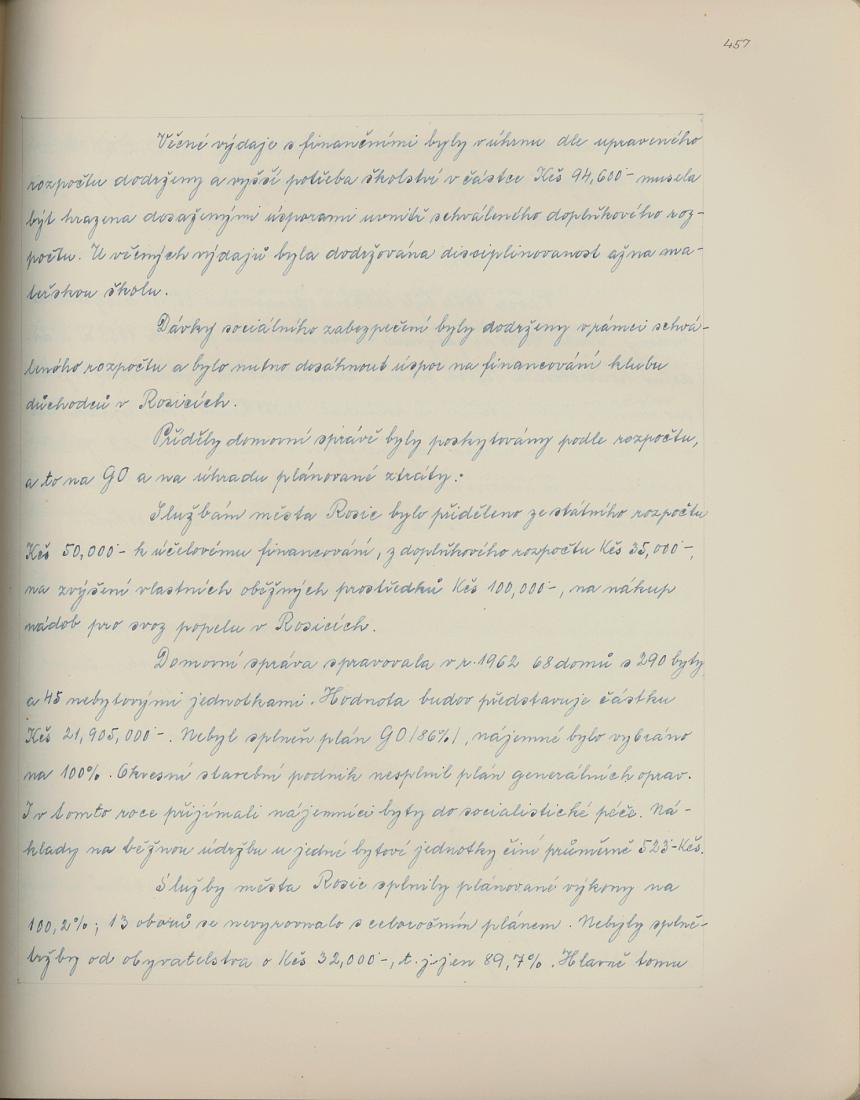 457
Věcné výdaje s finančními byly v úhrnu dle upraveného
rozpočtu dodrženy a vyšší potřeba školství v částce Kčs 94,600·- musela
být hrazena dosaženými úsporami uvnitř schváleného doplňkového roz-
počtu. U věcných výdajů byla dodržována disciplinovanost až na ma-
teřskou školu.
Dávky sociálního zabezpečení byly dodrženy v rámci schvá-
leného rozpočtu a bylo nutno dosáhnout úspor na financování klubu
důchodců v Rosicích.
Příděly domovní správě byly poskytovány podle rozpočtu,
a to na GO a na úhradu plánované ztráty.
Službám města Rosic bylo přiděleno ze státního rozpočtu
Kčs 50,000·- k účelovému financování, z doplňkového rozpočtu Kčs 35,000·-,
na zvýšení vlastních oběžných prostředků Kčs 100,000·-, na nákup
nádob pro svoz popelu v Rosicích.
Domovní správa spravovala v r. 1962 68 domů s 290 byty
a 45 nebytovými jednotkami. Hodnota budov představuje částku
Kčs 21,905,000·-. Nebyl splněn plán GO /86%/, nájemné bylo vybráno
na 100%. Okresní stavební podnik nesplnil plán generálních oprav.
I v tomto roce přijímali nájemníci byty do socialistické péče. Ná-
klady na běžnou údržbu u jedné bytové jednotky činí průměrně 523·-Kčs.
Služby města Rosic splnily plánované výkony na
100,2%; 13 oborů se nevyrovnalo s celoročním plánem. Nebyly splně-
tržby od obyvatelstva o Kčs 32,000·-, t.j. jen 89,7%. Hlavně tomu